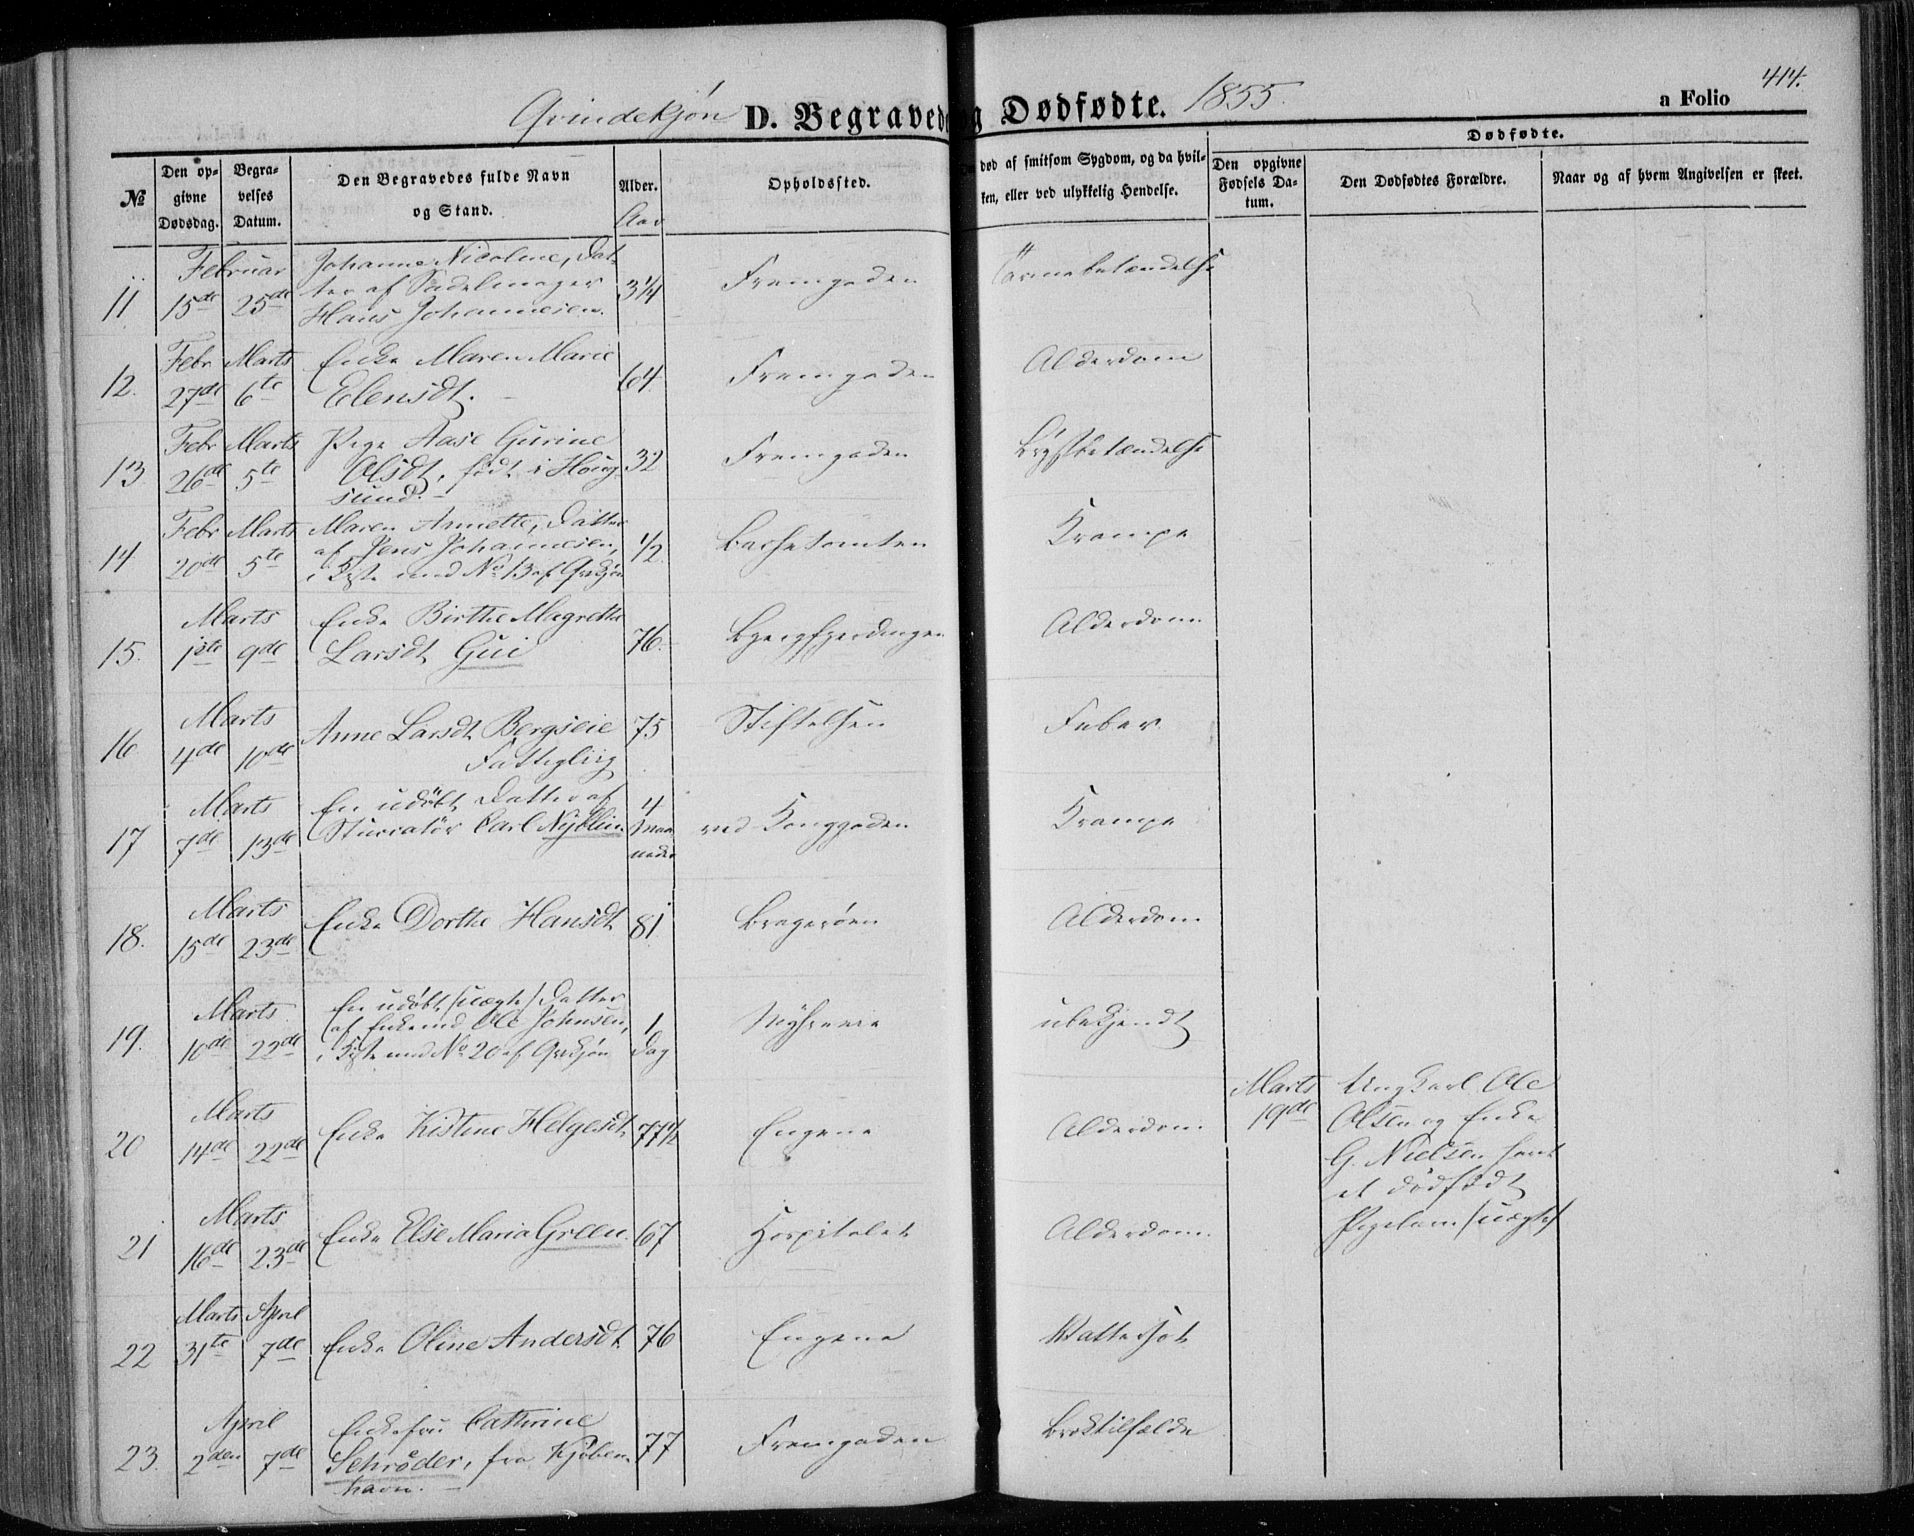 Qvindekjøn D. Begravede og Dødfødte. 1855. a Folio 414.
№
Den opgivne Dødsdag.
Begravelses Datum.
Den Begravedes fulde Navn og Stand.
Alder.
Aar
Opholdssted.
død af smitsom Sygdom, og da hvilken, eller ved ulykkelig Hendelse.
Dødfødte.
Den opgivne Fødsels Datum.
Den Dødfødtes Forældre.
Naar og af hvem Angivelsen er skeet.
11 Februar 15de 25de Johanne Nicoline, Datter af Sadelmager Hans Johannesen. 3¼ Fremgaden Tarmebetændelse
12. Febr 27de Marts 6te Enke Maren Marie Elensdt. 64. Fremgaden Alderdom
13 Febr 26de Marts 5te Pige Aase Gurine Olsdt, født i Hougsund. 32 Fremgaden Brystbetændelse
14 Febr 20de Marts 5te Maren Annette, Datter af Jens Johannesen, i Kiste med No 13 af Qvkjøn ½ Bachetomten Krampe
15. Marts 1ste 9de Enke Birthe Magrethe Larsdt Gui 76. Bjergfjerdingen Alderdom
16 Marts 4de 10de Anne Larsdt Bergseie Fattiglig 75 Stiftelsen Feber
17 Marts 7de 13de En udøbt Datter af Sturratør Carl 4 Maaneder ved Konggaden Krampe
18. Marts 15de 23de Enke Dorthe Hansdt 81 Bragerøen Alderdom
19. Marts 10de 22de En udøbt (uægte) Datter af Enkemd Ole Johnsen, i Kiste med No 20 af Qvkjøn 1 Dag ubekjendt
20 Marts 14de 22de Enke Kistine Helgesdt 77½ Engene Alderdom
Marts 19de Ungkarl Ole Olsen og Enke G. Nielsen havt et dødfødt Pigebarn (uægte)
21 Marts 16de 23de Enke Else Maria Green. 67 Hospitalet Alderdom.
22 Marts 31te April 7de Enke Oline Andersdt 76 Engene Wattersot
23. April 2den 7de Enkefru Cathrine Schrøder, fra Kjøbenhavn. 77 Fremgaden Broktilfælde